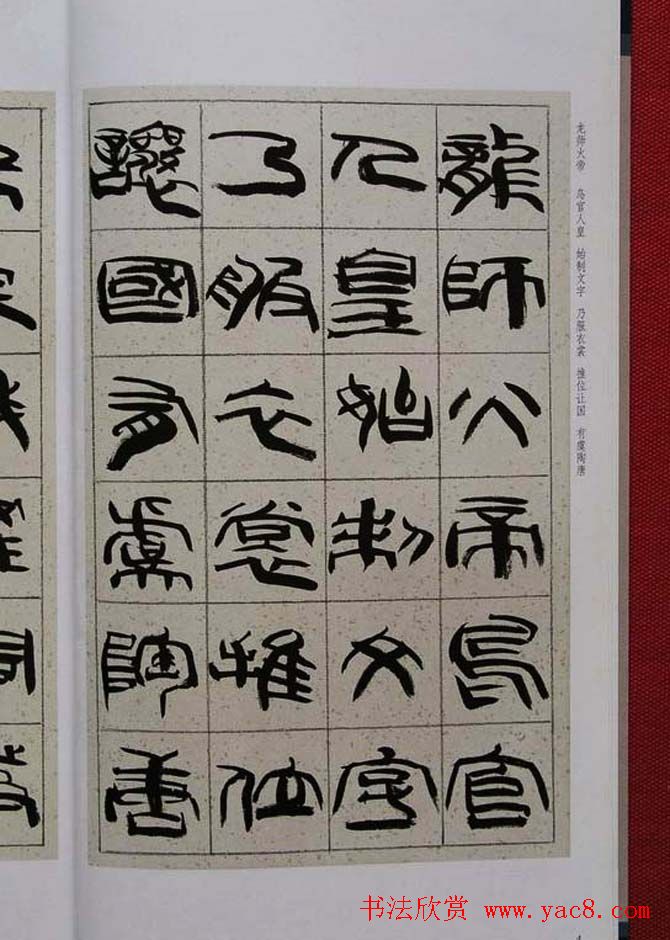 龙师火帝 鸟官人皇 始制文字 乃服衣裳 推位让国 有虞陶唐
龍師火帝鳥官
人皇始制文字
乃服衣裳推位
讓國有虞陶唐
书法欣赏 www.yac8.com